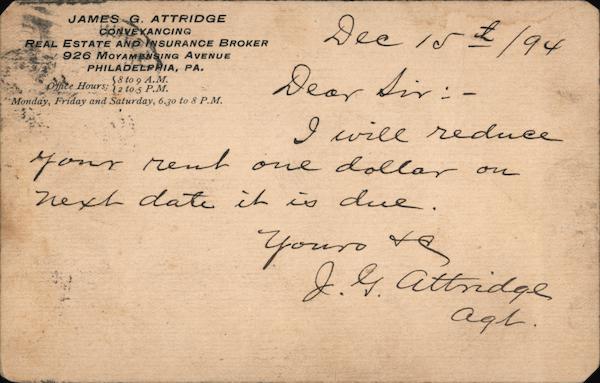 JAMES G. ATTRIDGE
CONVEYANCING
REAL ESTATE AND INSURANCE BROKER
926 MOYAMENSING AVENUE
PHILADELPHIA, PA.
Office Hours: { 8 to 9 A.M.
2 to 5 P.M.
Monday, Friday and Saturday, 6.30 to 8 P.M.
Dec 15th/94
Dear Sir:-
I will reduce
your rent one dollar on
next date it is due.
Yours &c
J. G. Attridge
Agt.